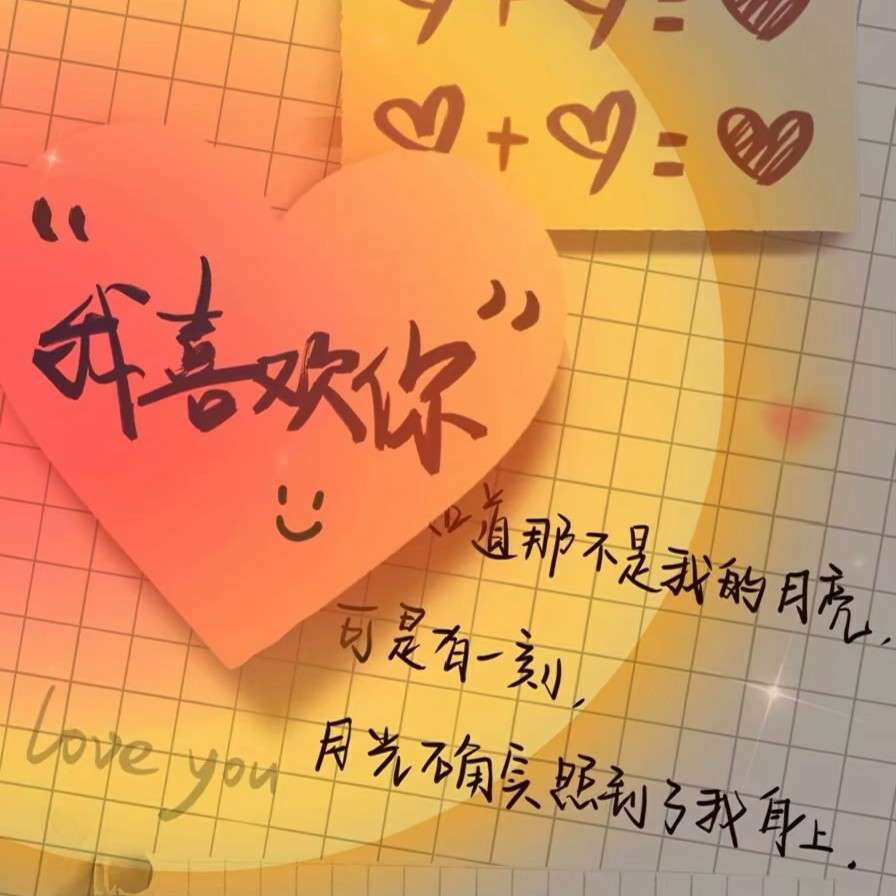 “我喜欢你”
知道那不是我的月亮,
可是有一刻,
月光确实照到了我身上.
love you